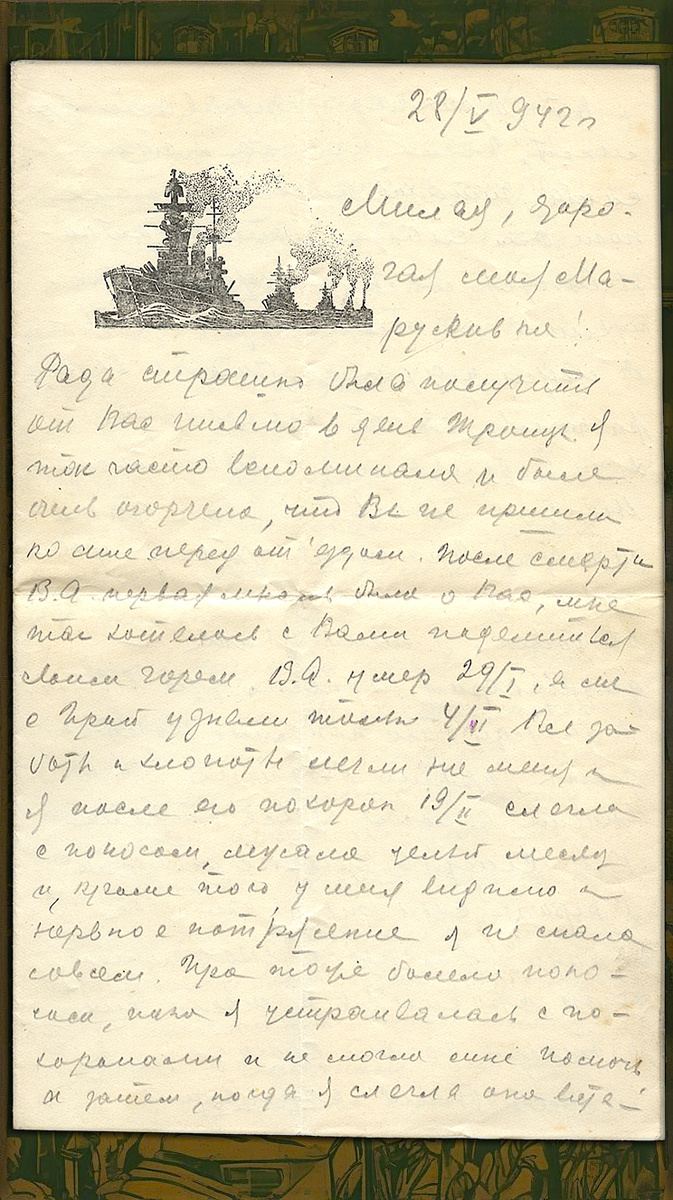 28/V 942 г
Милая, доро-
гая моя Ма-
русенька!
Рада страшно была получить
от Вас письмо в день Троицы. Я
так часто вспоминала и была
очень огорчена, что Вы не пришли
ко мне перед от'ездом. После смерти
В.А. первая мысль была о Вас, мне
так хотелось с Вами поделиться
своим горем. В.А. умер 29/I, а мы
с Ирой узнали только 4/II. Все за-
боты и хлопоты легли на меня и
я после его похорон 19/II слегла
с поносом, мучала целый месяц
и, кроме того, у меня видимо и
нервное потрясение я не спала
совсем. Ира тоже болела поно-
сом, пока я устраивалась с по-
хоронами и не могла мне помочь
и затем, когда я слегла она вста-